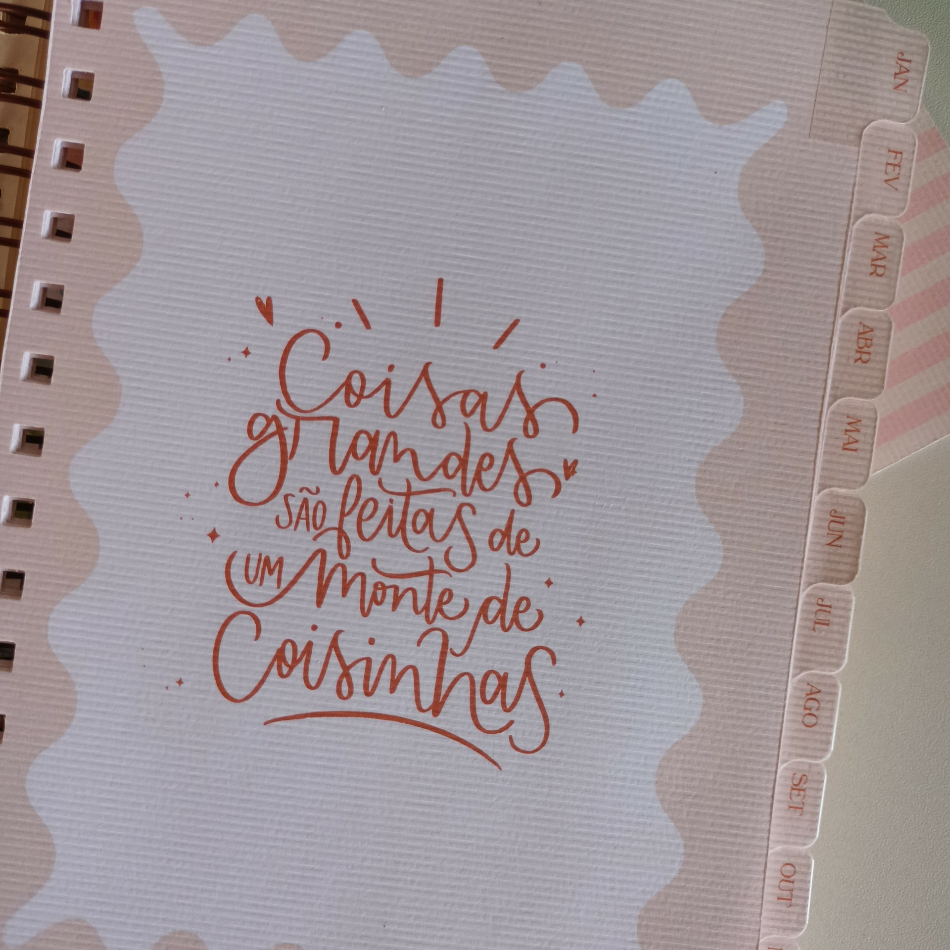 Coisas
grandes
SÃO feitas de
UM monte de
Coisinhas
JAN
FEV
MAR
ABR
MAI
JUN
JUL
AGO
SET
OUT